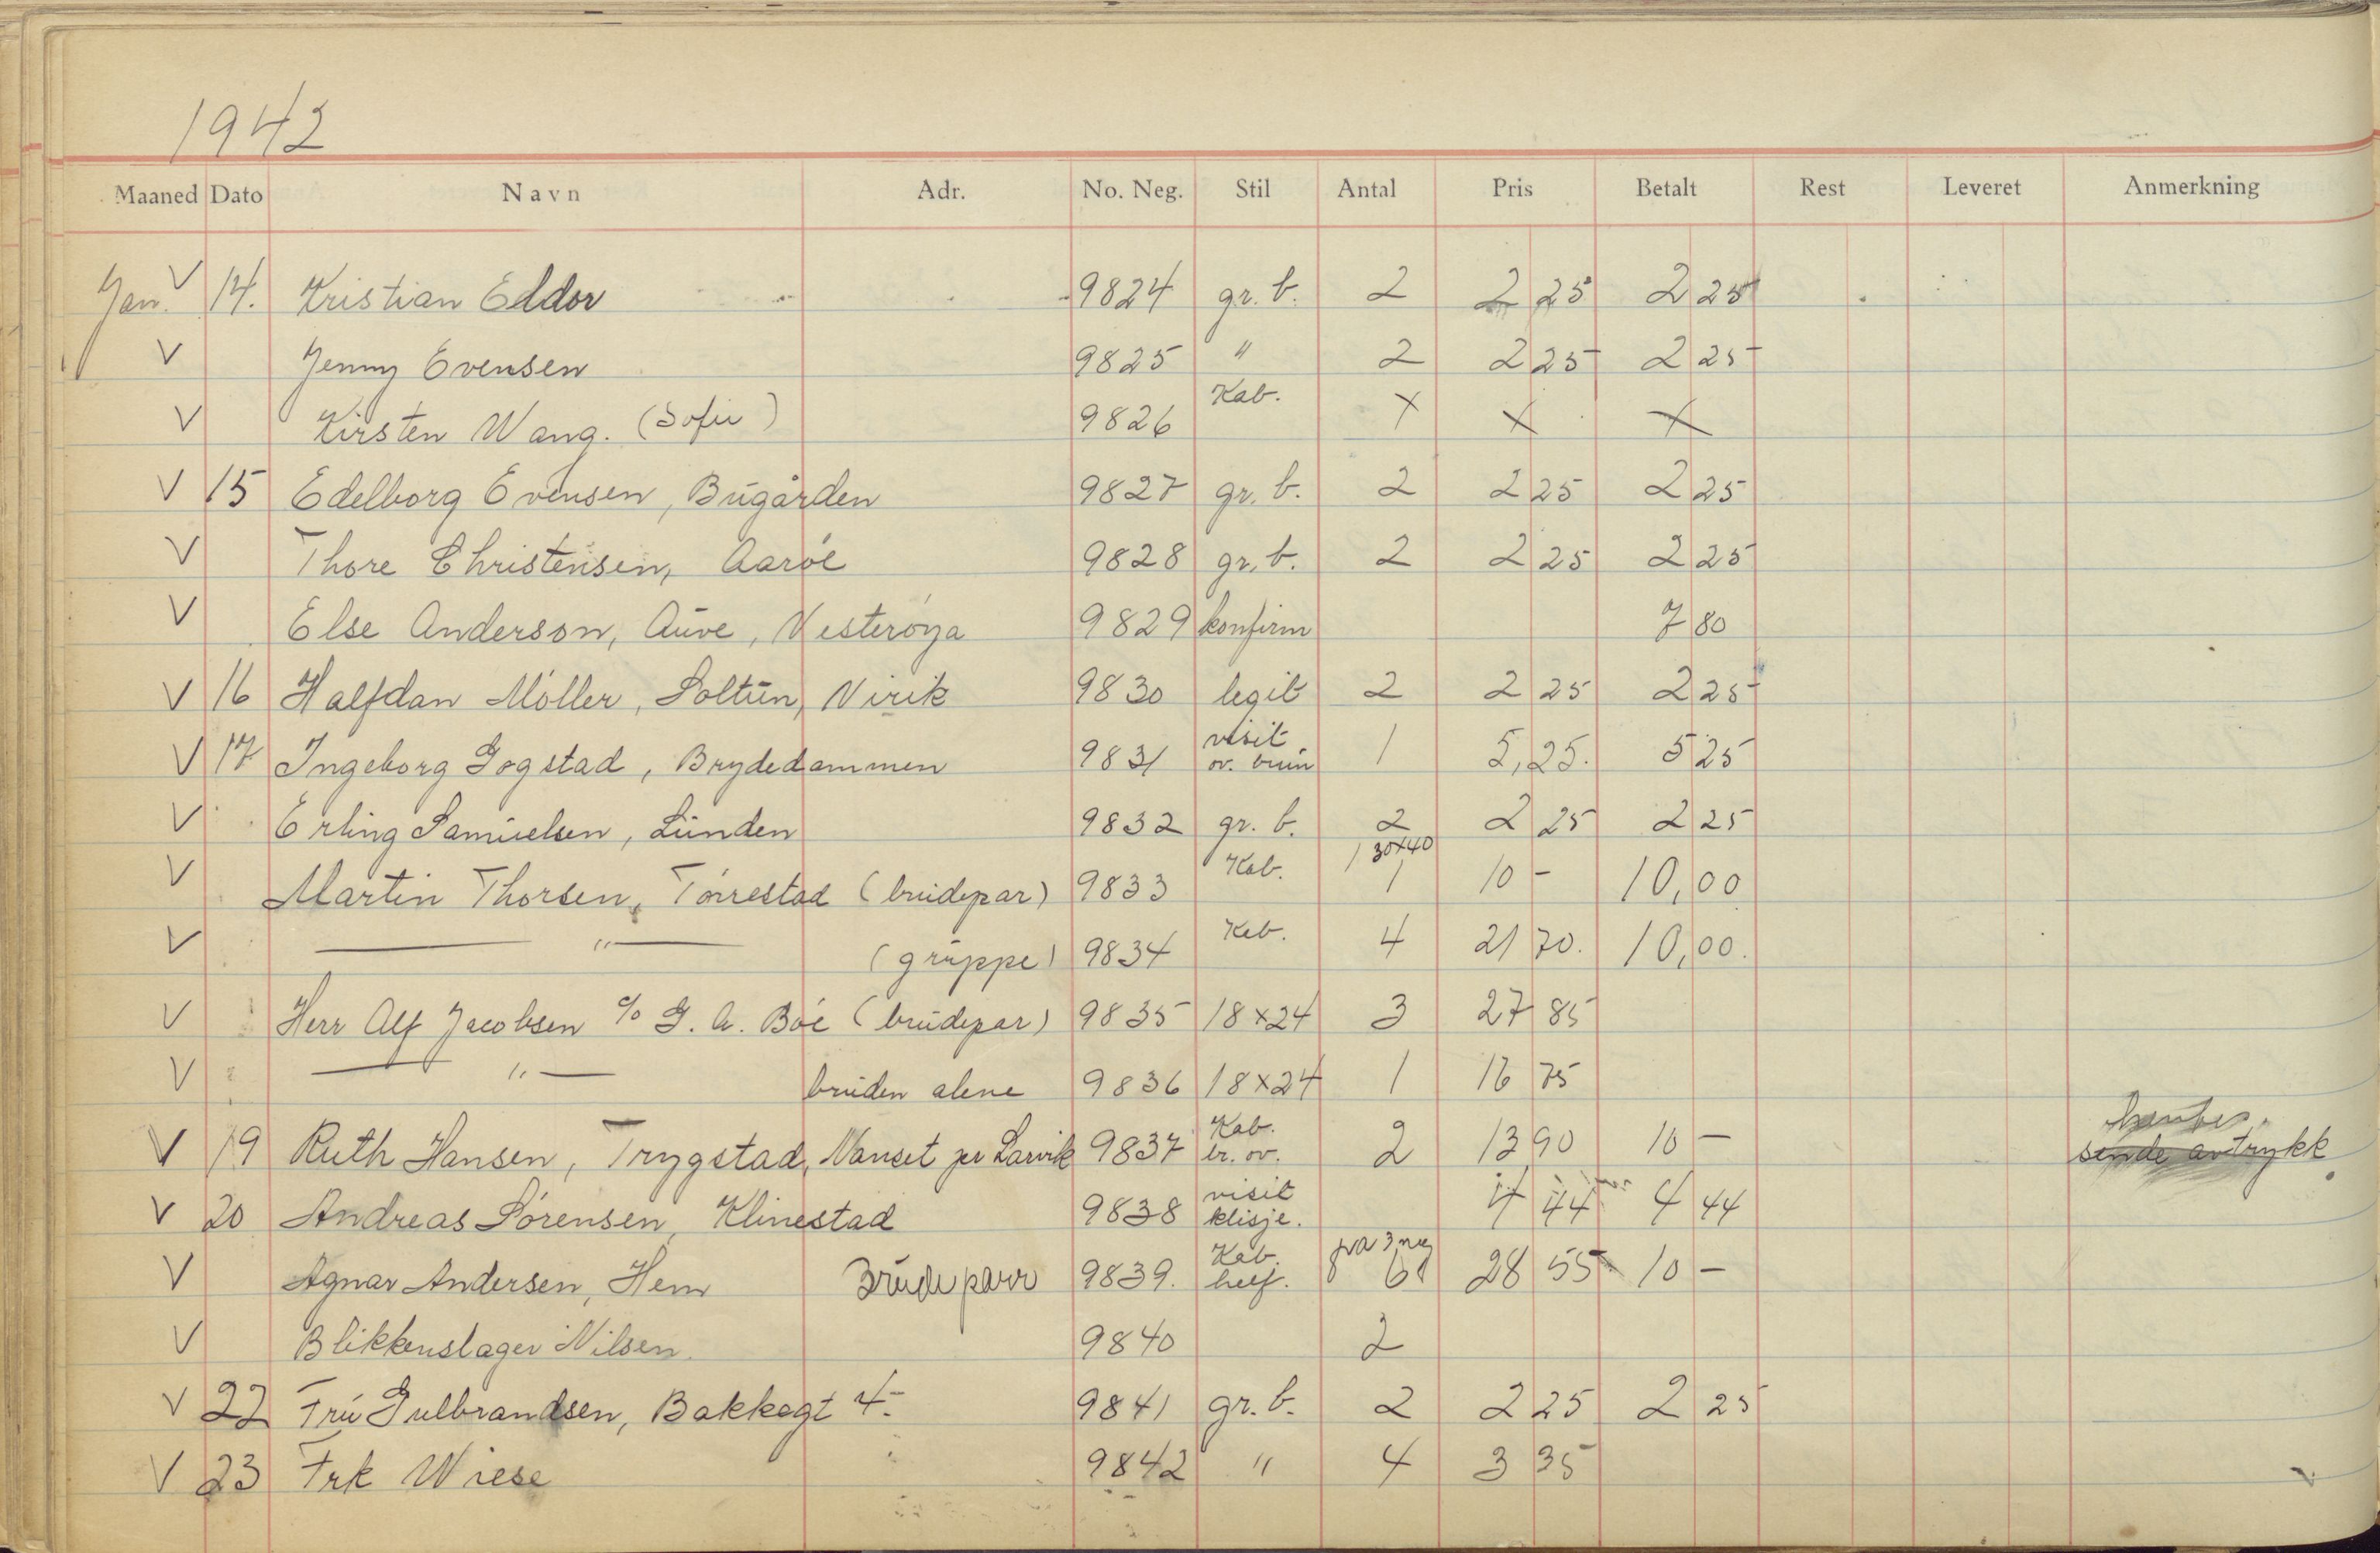 1942
Maaned Dato Navn Adr. No. Neg. Stil Antal Pris Betalt Rest Leveret Anmerkning
Jan. V 14. Kristian Eldor 9824 gr. b. 2 2 25 2 25
V Jenny Evensen 9825 " 2 2 25 2 25
V Kirsten Wang. (Sofie) 9826 Kab. X X X
V 15 Edelborg Evensen, Bugården 9827 gr. b. 2 2 25 2 25
V Thore Christensen, Aaröe 9828 gr. b. 2 2 25 2 25
V Else Anderson, Auve, Vesteröya 9829 konfirm 7 80
V 16 Halfdan Möller, Soltun, Virik 9830 legit 2 2 25 2 25
V 17 Ingeborg Gogstad, Brydedammen 9831 visit ov. brun 1 5,25. 5 25
V Erling Samuelsen, Lunden 9832 gr. b. 2 2 25 2 25
V Martin Thorsen, Törrestad (brudepar) 9833 Kab. 1 30x40 1 10 - 10,00
V — " — (gruppe) 9834 Kab. 4 21 70. 10,00.
V Herr Alf Jacobsen c/o G. A. Böe (brudepar) 9835 18x24 3 27 85
V — " — bruden alene 9836 18x24 1 16 75
V 19 Ruth Hansen, Trygstad, Nanset per Larvik 9837 Kab. br. ov. 2 13 90 10 — hentes.
sende avtrykk
V 20 Andreas Sörensen, Klinestad 9838 visit klisje. 4 44 4 44
V Agnar Andersen, Hem Brudeparr 9839. Kab. helf. fra 3 neg 6 28 55 10 —
V Blikkenslager Nilsen. 9840 2
V 22 Fru Gulbrandsen, Bakkegt 4. 9841 gr. b. 2 2 25 2 25
V 23 Frk Wiese 9842 " 4 3 35